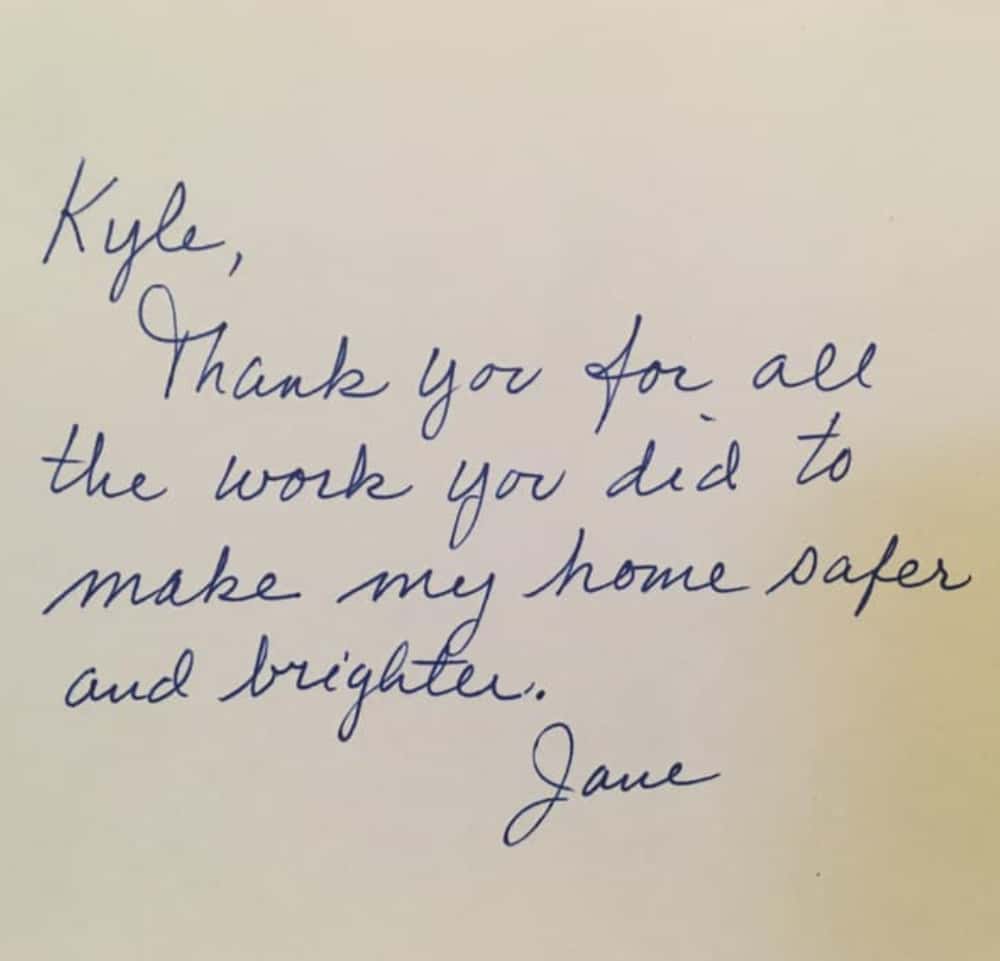 Kyle,
Thank you for all
the work you did to
make my home safer
and brighter.
Jane